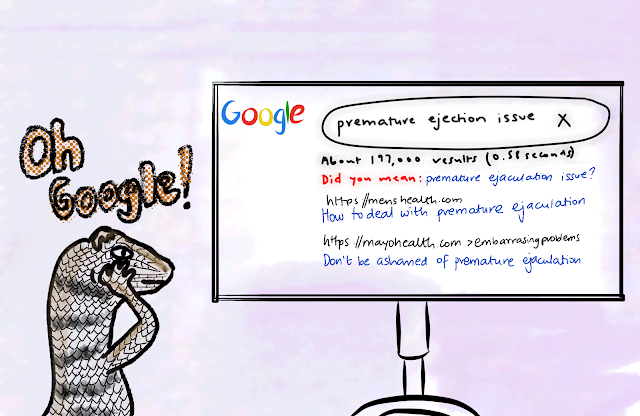 Oh
Google!
Google
premature ejection issue X
About 197,000 results (0.58 seconds)
Did you mean: premature ejaculation issue?
https://menshealth.com
How to deal with premature ejaculation
https://mayohealth.com >embarrasingproblems
Don't be ashamed of premature ejaculation